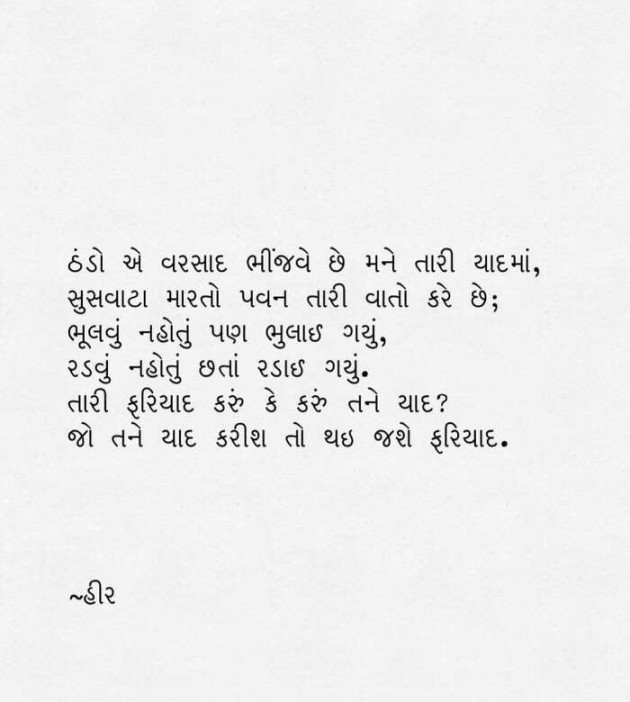 ઠંડો એ વરસાદ ભીંજવે છે મને તારી યાદમાં,
સુસવાટા મારતો પવન તારી વાતો કરે છે;
ભૂલવું નહોતું પણ ભુલાઈ ગયું,
રડવું નહોતું છતાં રડાઈ ગયું.
તારી ફરિયાદ કરું કે કરું તને યાદ?
જો તને યાદ કરીશ તો થઇ જશે ફરિયાદ.
~હીર